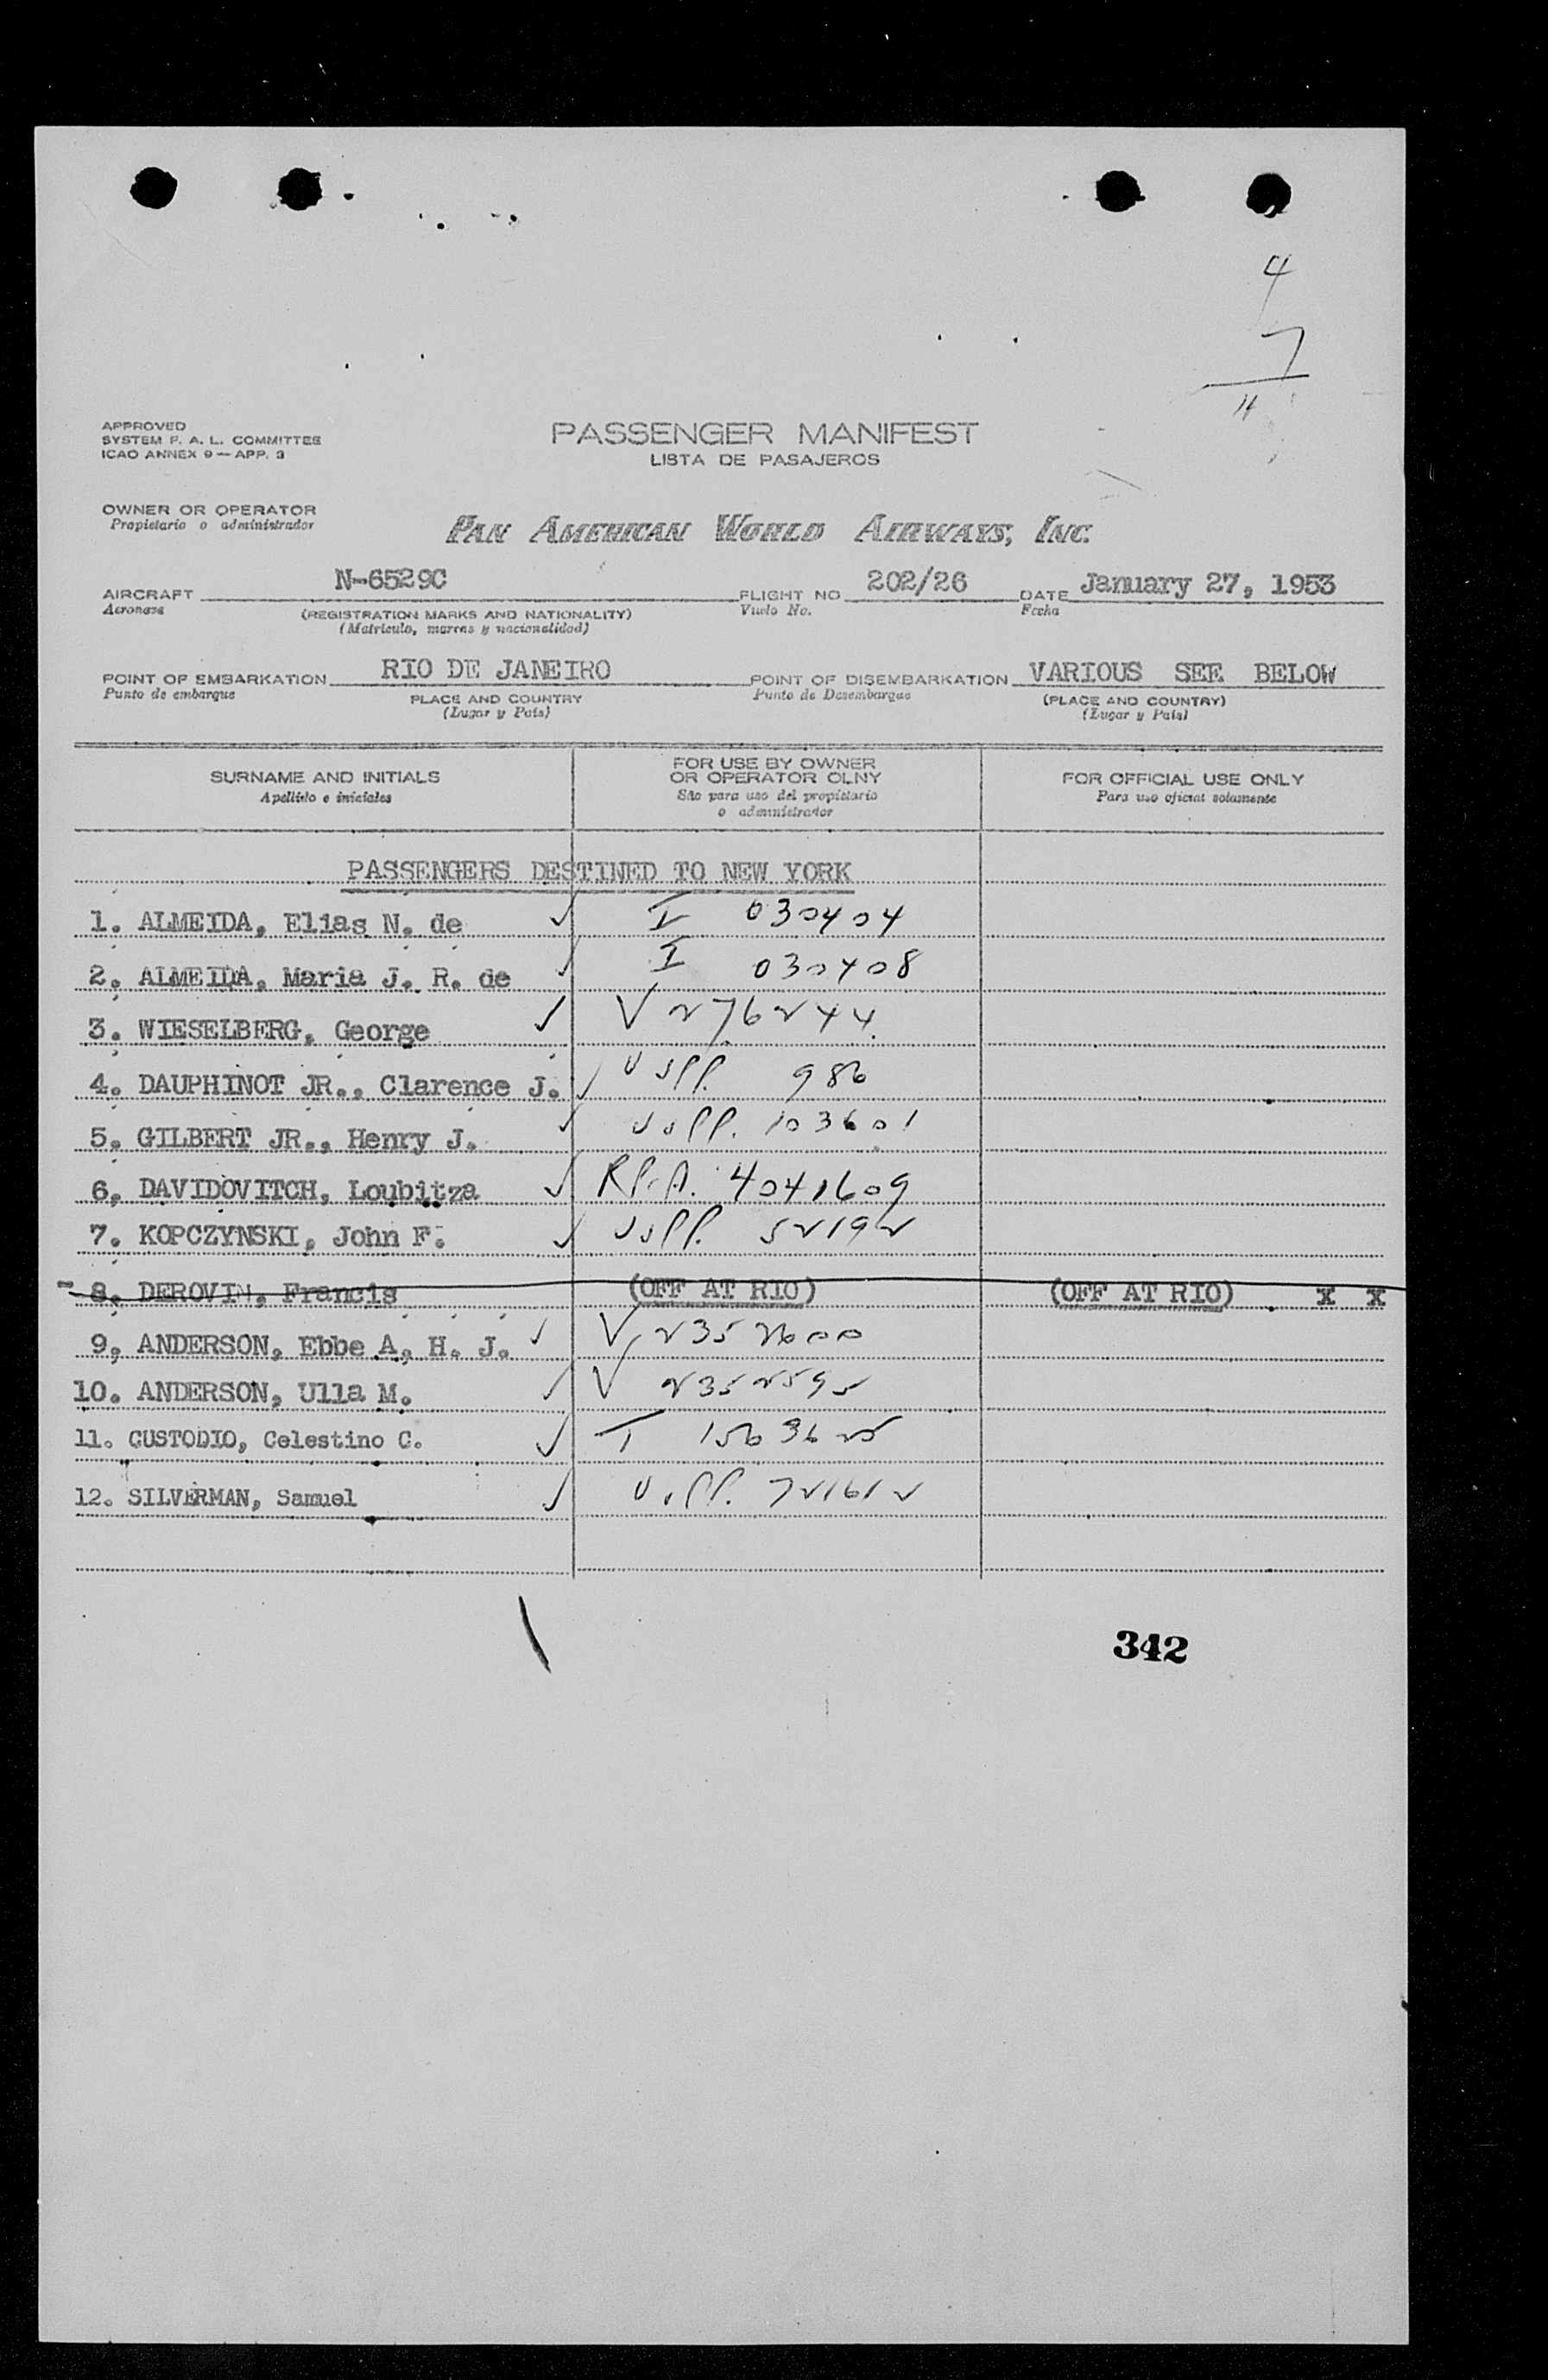 4
7
11
APPROVED
SYSTEM F. A. L. COMMITTEE
ICAO ANNEX 9 — APP. 3
PASSENGER MANIFEST
LISTA DE PASAJEROS
OWNER OR OPERATOR
Propietario o administrador
PAN AMERICAN WORLD AIRWAYS, INC.
AIRCRAFT N-6529C FLIGHT NO 202/26 DATE January 27, 1953
Aeronave (REGISTRATION MARKS AND NATIONALITY) Vuelo No. Fecha
(Matricula, marcas y nacionalidad)
POINT OF EMBARKATION RIO DE JANEIRO POINT OF DISEMBARKATION VARIOUS SEE BELOW
Punto de embarque PLACE AND COUNTRY Punto de Desembarque (PLACE AND COUNTRY)
(Lugar y País) (Lugar y País)
SURNAME AND INITIALS FOR USE BY OWNER OR OPERATOR OLNY FOR OFFICIAL USE ONLY
Apellido e iniciales São para uso del propietario o administrador Para uso oficial solamente
PASSENGERS DESTINED TO NEW YORK
1. ALMEIDA, Elias N. de ✓ I 030404
2. ALMEIDA, Maria J. R. de ✓ I 030408
3. WIESELBERG, George ✓ V 276244
4. DAUPHINOT JR., Clarence J. ✓ USPP. 986
5. GILBERT JR., Henry J. ✓ USPP. 103601
6. DAVIDOVITCH, Loubitza ✓ R.P.A. 4041609
7. KOPCZYNSKI, John F. ✓ USPP. 52192
8. DEROVIN, Francis (OFF AT RIO) (OFF AT RIO) X X
9. ANDERSON, Ebbe A. H. J. ✓ V 2352600
10. ANDERSON, Ulla M. ✓ V 235259
11. CUSTODIO, Celestino C. ✓ I 1563625
12. SILVERMAN, Samuel ✓ USPP. 721612
342